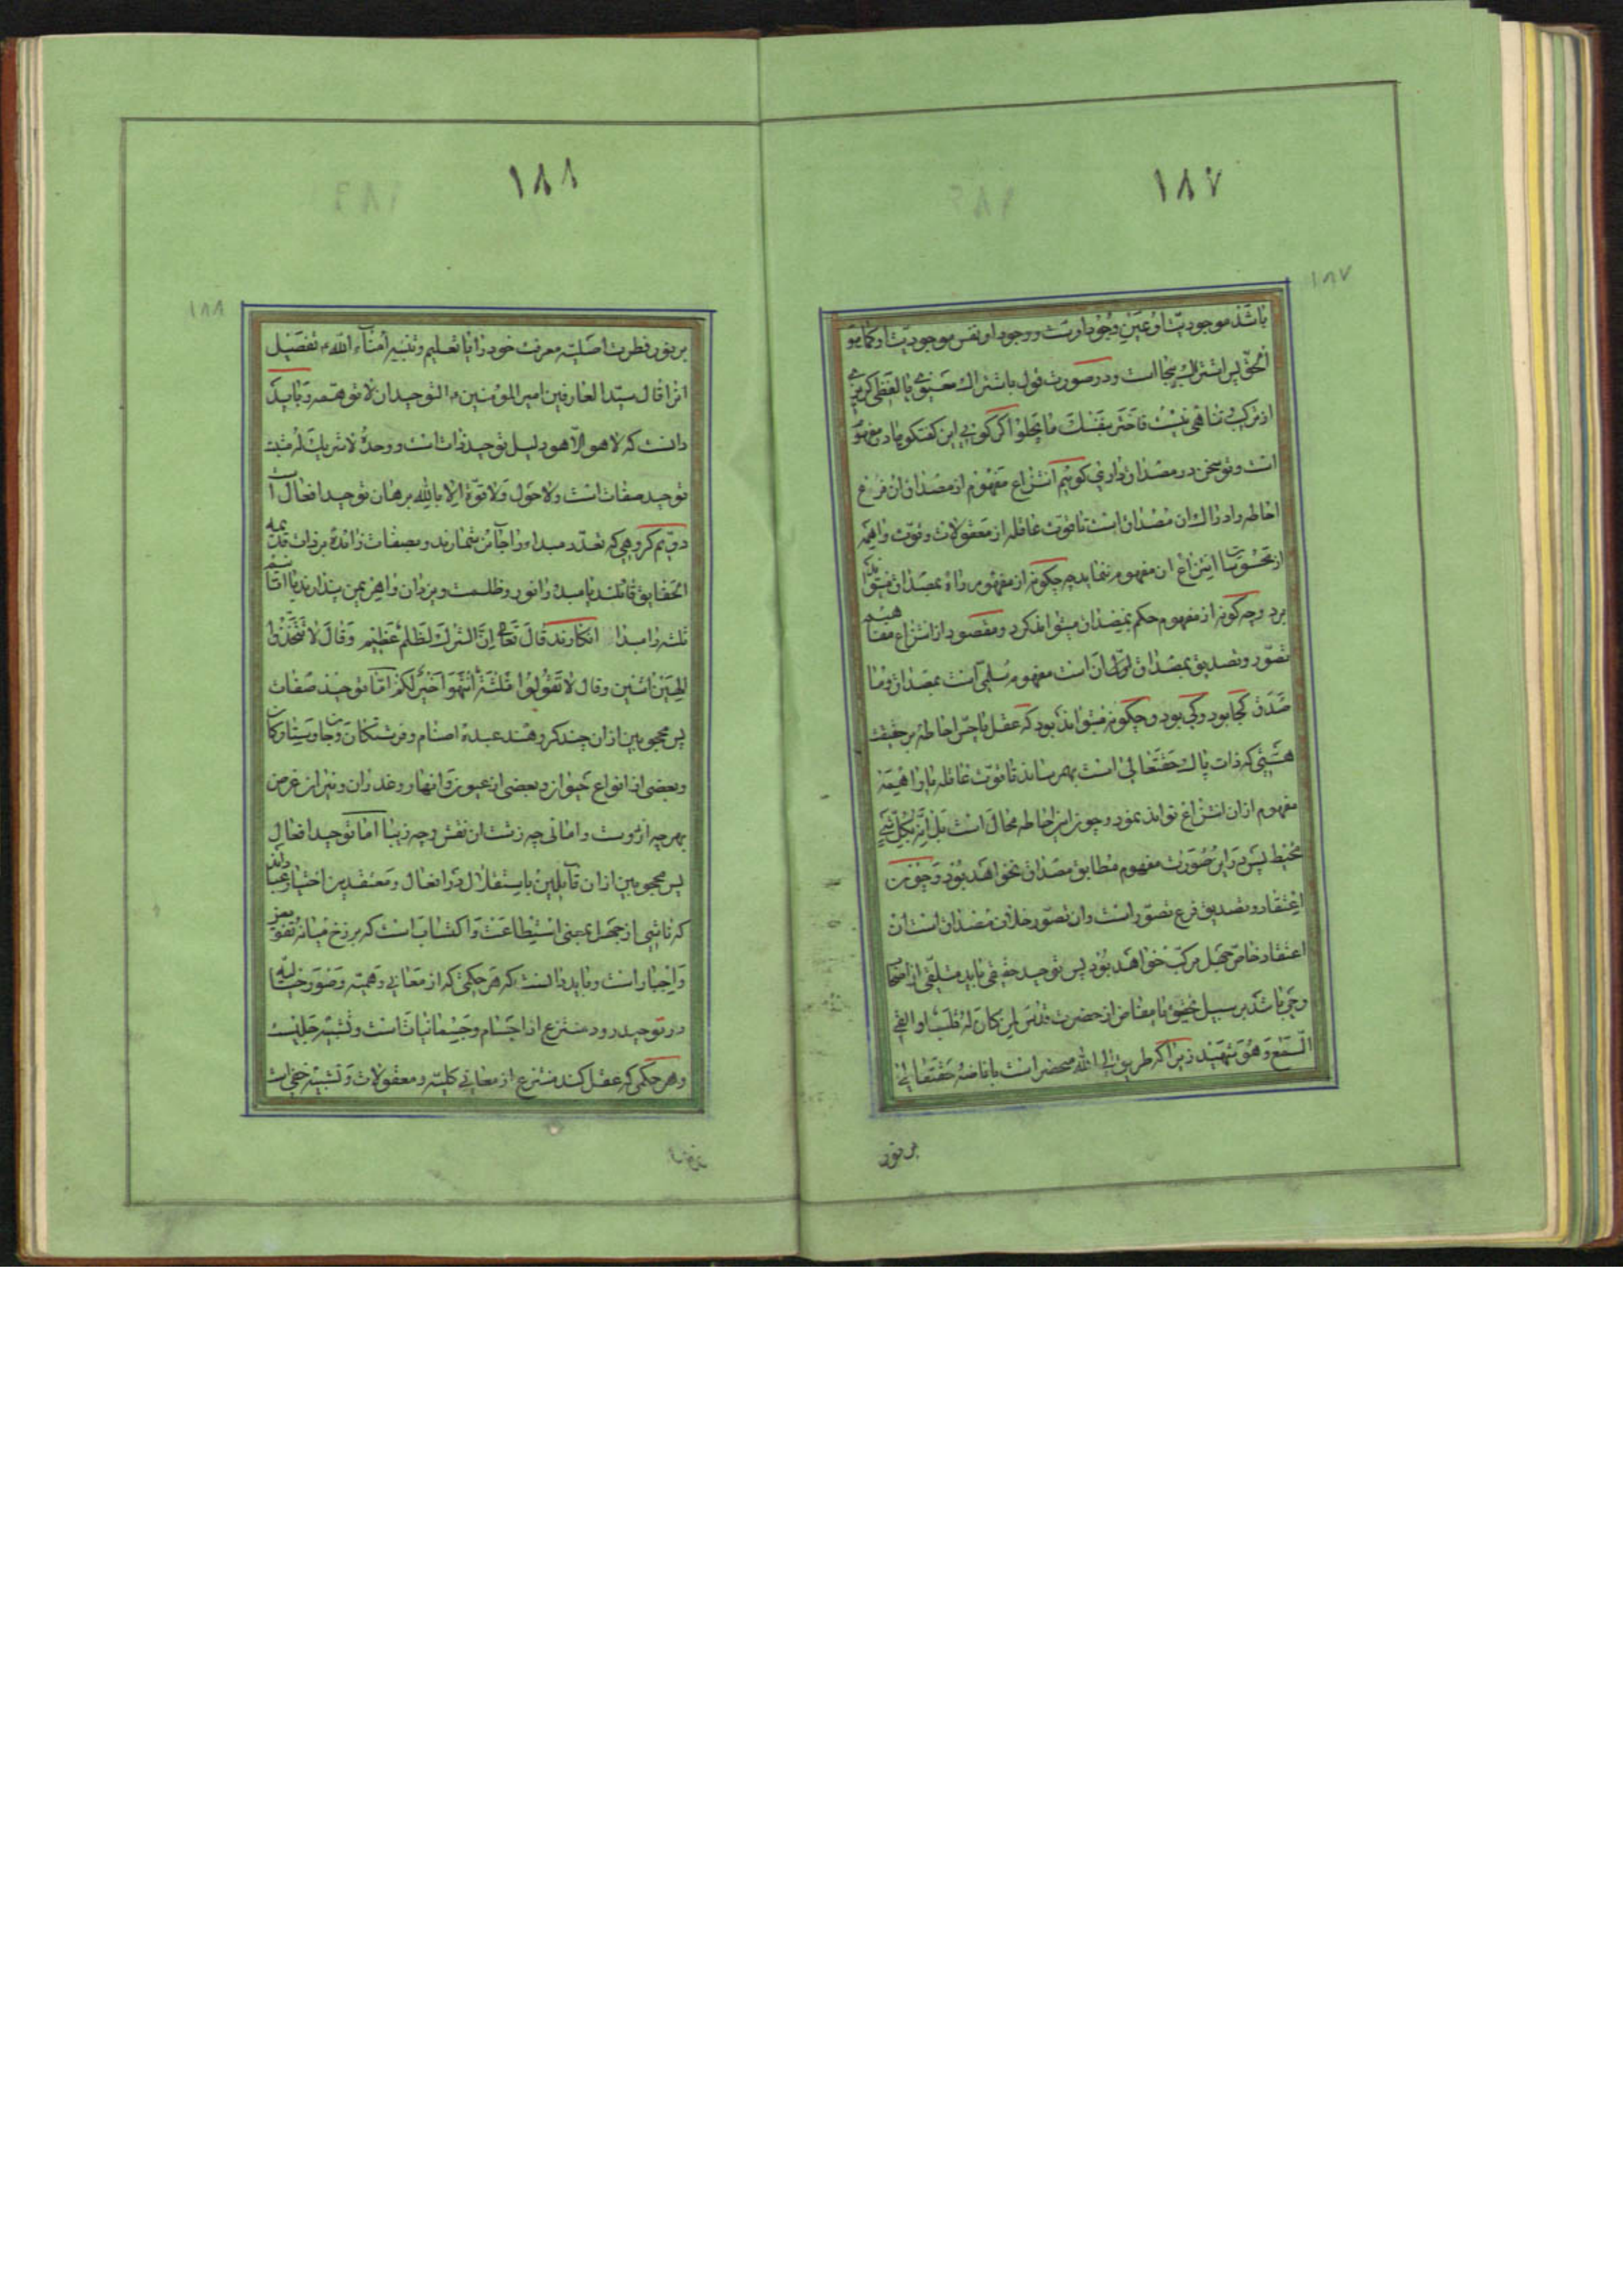 ۱۸۷
۱۸۷
باشد موجودیّت او عین وجود اوست و وجود او نفس موجودیّت او کما هو
الحقّ پس اشتراک بیجا است و در صورت قول باشتراک حقیقی یا لفظی گریزی
از ترکیب و تناهی نیست فاختر بنفسک ما یحلو اگر گویی این گفتگو ما در مفهوم
است و تو سخن در مصداق داری گوییم انتزاع مفهوم از مصداق فرع
احاطه و ادراک ان مصداق است تا قوّت عاقله از معقولات و قوّت واهمه
از محسوسات انتزاع ان مفهوم ننماید چه چگونه از مفهوم راه بمصداق میتواند
برد و چه گونه از مفهوم حکم بمصداق میتواند کرد و مقصود از انتزاع مفاهیم
تصوّر و تصدیق بمصداق لولا ان است مفهوم سلّمی است بمصداق و ما
صدق کجا بود و کی بود و چگونه میتواند بود که عقل یا حسّ احاطه بر حقیقت
هستی که ذات پاک حقتعالی است بهم رساند تا قوّت عاقله یا واهمه
مفهوم از ان انتزاع تواند نمود و چون این احاطه محال است بل انّه بکلّ شیء
محیط پس در این صورت مفهوم مطابق مصداق نخواهد بود و چون
اعتقاد و تصدیق فرع تصوّر است و ان تصوّر خلاف مصداق است ان
اعتقاد خاصّ جهل مرکّب خواهد بود پس توحید حقیقی باید متلقّی از اصحاب
وحی باشد بر سبیل تحقیق یا مفاض از حضرت قدس لمن کان له قلب او القی
السّمع و هو شهید زیرا که طریق الی الله منحصر است بافاضه حقتعالی
بر نور
۱۸۸
۱۸۸
بر نور فطرت اصلیّه معرفت خود را یا تعلیم و تنبیه أمناء الله تفصیل
انرا قال سیّد العارفین امیر المؤمنین التوحید ان لا تتوهّمه و باید
دانست که لا هو الّا هو دلیل توحید ذات است و وحده لا شریک له مثبت
توحید صفات است و لا حول و لا قوّة الّا بالله برهان توحید افعال است
دویم گروهی که تعدّد مبداء را جائز شمارند و بصفات زائده بر ذات قدیمه
الحقایق قائلند یا مبدء را نور و ظلمت و یزدان و اهرمن پندارند یا اقانیم
ثلثه را مبدا انگارند قال تعالی إنّ الشرک لظلم عظیم و قال لا تتّخذوا
إلهین اثنین و قال لا تقولوا ثلثة انتهوا خیر لکم امّا توحید صفات
پس محجوبین از ان چند گروهند عبده اصنام و فرشتگان و جان و ستارگان
و بعضی از انواع حیوان و بعضی از عیون و انهار و غدران و نیران غرض
بهرچه ازوست و امانی چه زشت ان نقش و چه زیبا امّا توحید افعال
پس محجوبین از ان قایلین باستقلال در افعال و معتقدین اختیار عبادند
که ناشی از جهل بمعنی استطاعت و اکتساب است که برزخ میانه تفویض
و اجبار است و باید دانست که هر حکمی که از معانی وهمیّه و صور خیالیّه
در توحید رود منتزع از اجسام و جسمانیات است و تشبیه جلیست
و هر حکمی که عقل کند منتزع از معانی کلیّه و معقولات و تشبیه خفی است